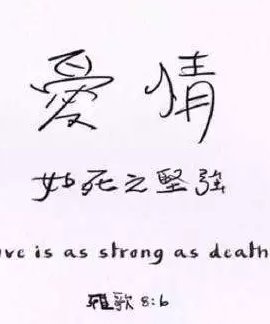 愛情
如死之堅強
ve is as strong as death
雅歌 8:6